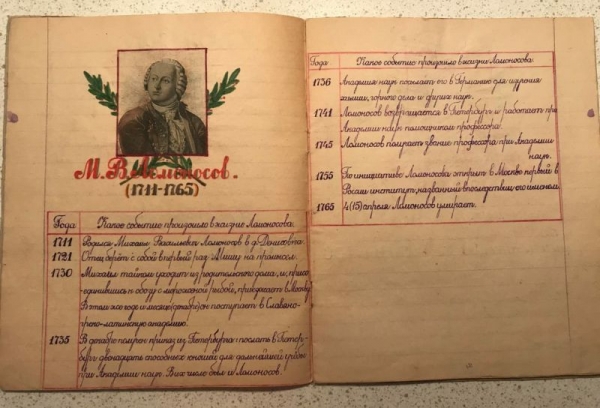 М. В. Ломоносов.
(1711-1765)
Года
Какое событие произошло в жизни Ломоносова.
1711 Родился Михаил Васильевич Ломоносов в д. Денисовка.
1721 Отец берёт с собой в первый раз Мишу на промысел.
1730 Михаил тайком уходит из родительского дома, и, присо-
единившись к обозу с мороженой рыбой, приезжает в Москву
В этом же году и месяце (декабре) он поступает в Славяно-
греко-латинскую академию.
1735 В декабре получен приказ из Петербурга: послать в Петер-
бург двенадцать способных юношей для дальнейшей учебы
при Академии наук. В их числе был и Ломоносов.
Года
Какое событие произошло в жизни Ломоносова
1736 Академия наук посылает его в Германию для изучения
химии, горного дела и других наук.
1741 Ломоносов возвращается в Петербург и работает при
Академии наук помощником профессора.
1745 Ломоносов получает звание профессора при Академии
наук.
1755 По инициативе Ломоносова открыт в Москве первый в
России институт, названный впоследствии его именем.
1765 4(15) апреля Ломоносов умирает.